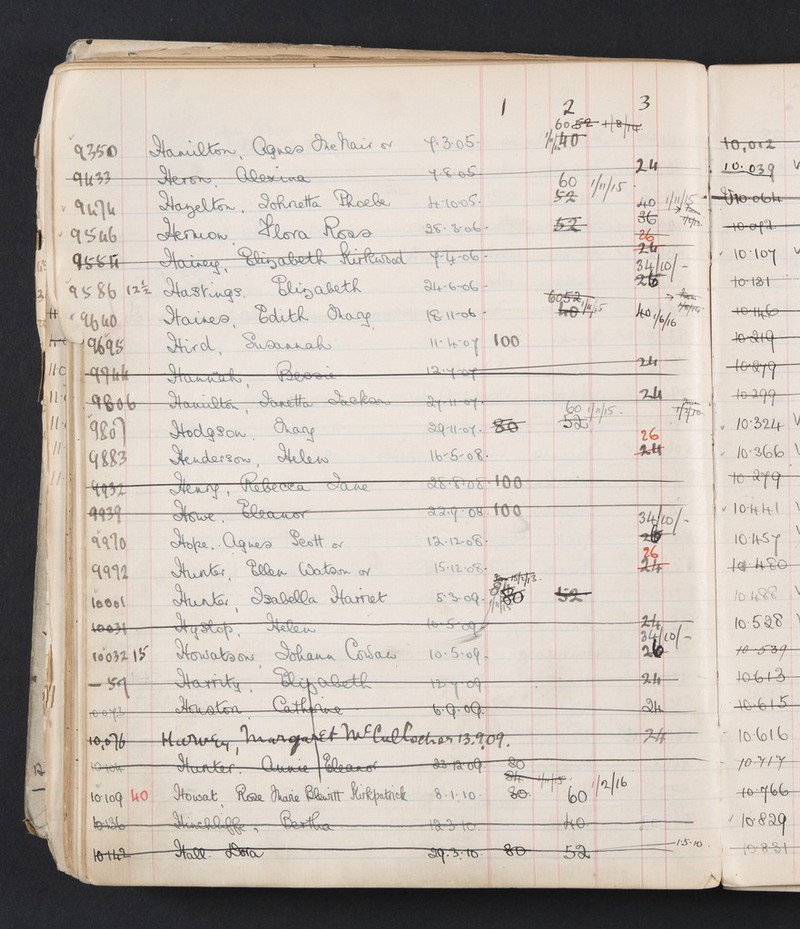 1 2 3
60 52 1/8/14
9350 Hamilton, Agnes McNair or 7.3.05. 1/1/ 40
9433 Heron, Alexina 7.8.05 24
9474 Hazelton, Johnetta Phoebe 4.10.05. 60 52 1/11/15. 40 36 1/11/15
9546 Hermon, Flora Ross 28.3.06. 52 26
9584 Hainey, Elizabeth Kirkwood 7.4.06 24
9586 12½ Hastings, Elizabeth 24-6-06 34/10/- 26
9640 Haines, Edith Mary 18.11.06 60 52 40 1/11/15 40 1/6/16
9695 Hird, Susannah 11.4.07 100
9744 Hannah, Bessie 12.7.07 24
9806 Hamilton, Janetta Jackson 27.11.07 24
9807 Hodgson, Mary 29.11.07. 80 60 52 1/11/15.
9883 Henderson, Helen 16-5-08. 26 24
9932 Henry, Rebecca Jane 28.8.08 100
9939 Howe, Eleanor 22.9.08 100
9970 Hope, Agnes Scott or 12.12.08. 34/10/- 26
9972 Hunter, Ellen Watson or 15.12.08. 26 24
10001 Hunter, Isabella Harriet 5.3.09. 84 80 52
10031 Hyslop, Helen 10.5.09 24
10032 15 Howatson, Johann Cowan 10.5.09. 34/10/- 26
-59 Harrity, Elizabeth 12.7.09 24
10073 Houston, Catherine 6.9.09. 24
10,076 Harvey, Margaret McCulloch or 13.9.09. 24
10104 Hunter, Annie Eleanor 23.12.09 80
10109 40 Howat, Rose Marie Blewitt Kirkpatrick 8.1.10. 84 80 60 1/2/16
10136 Hinchliffe, Bertha 12.3.10. 40
10142 Hall, Dora 29.3.10 80 52 1.5.10
10,012
10.039
10.064
10.092
10.107
10.131
10.146
10.219
10.279
10.299
10.324
10.366
10.279
10.441
10.457
10.480
10.488
10.528
10.539
10.613
10.615
10.616
10.717
10.766
10.829
10.831